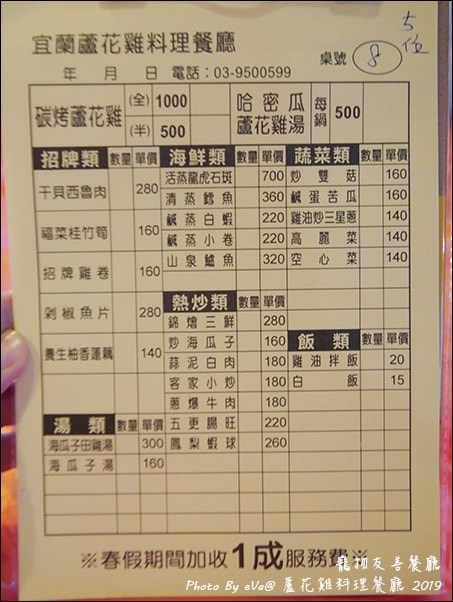 宜蘭蘆花雞料理餐廳
年 月 日 電話:03-9500599
桌號 8 5位
碳烤蘆花雞 (全) 1000 (半) 500
哈密瓜蘆花雞湯 每鍋 500
招牌類 數量 單價
干貝西魯肉 280
福菜桂竹筍 160
招牌雞卷 160
剁椒魚片 280
養生柚香蓮藕 140
湯類 數量 單價
海瓜子田雞湯 300
海瓜子湯 160
海鮮類 數量 單價
活蒸龍虎石斑 700
清蒸鱈魚 360
鹹蒸白蝦 220
鹹蒸小卷 220
山泉鱸魚 320
熱炒類 數量 單價
錦燴三鮮 280
炒海瓜子 160
蒜泥白肉 180
客家小炒 180
蔥爆牛肉 180
五更腸旺 220
鳳梨蝦球 260
蔬菜類 數量 單價
炒雙菇 160
鹹蛋苦瓜 160
雞油炒三星蔥 140
高麗菜 140
空心菜 140
飯類 數量 單價
雞油拌飯 20
白飯 15
※春假期間加收1成服務費※
寵物友善餐廳
Photo By eVa@ 蘆花雞料理餐廳 2019